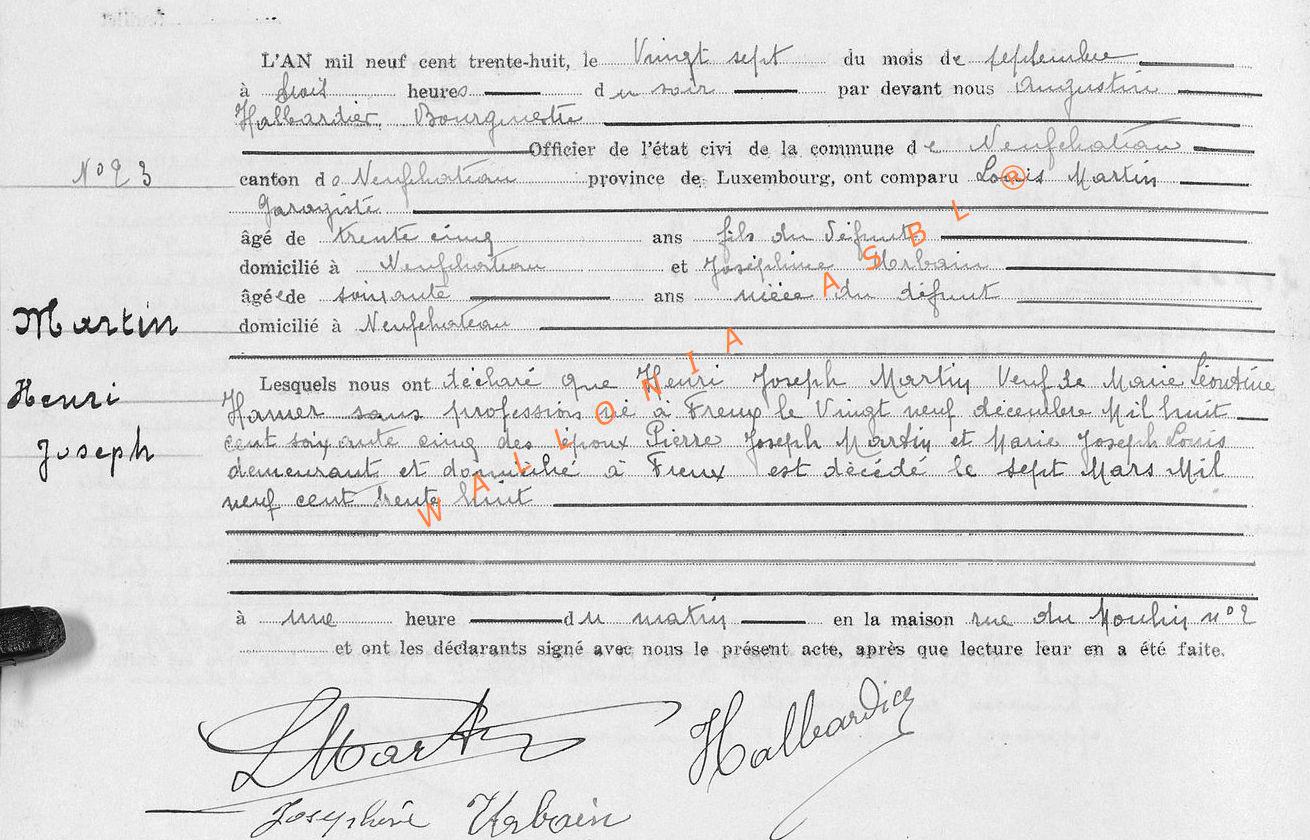 L'AN mil neuf cent trente-huit, le Vingt sept du mois de septembre
à trois heures du soir par devant nous Augustin
Halbardier, Bourgmestre
Officier de l'état civi de la commune de Neufchateau
N° 23
canton de Neufchateau province de Luxembourg, ont comparu Louis Martin
Garagiste
âgé de trente cinq ans fils du défunt
domicilié à Neufchateau et Joséphine Urbain
âgée de soixante ans nièce du défunt
domicilié à Neufchateau
Martin
Henri
Joseph
Lesquels nous ont déclaré que Henri Joseph Martin Veuf de Marie Léontine
Hamer sans profession né à Freux le Vingt neuf décembre Mil huit
cent soixante cinq des époux Pierre Joseph Martin et Marie Joseph Louis
demeurant et domicilié à Freux est décédé le sept Mars Mil
neuf cent trente huit
à une heure du matin en la maison rue du Moulin n° 2
et ont les déclarants signé avec nous le présent acte, après que lecture leur en a été faite.
LMartin
Halbardier
Joséphine Urbain
WALLONIA ASBL @